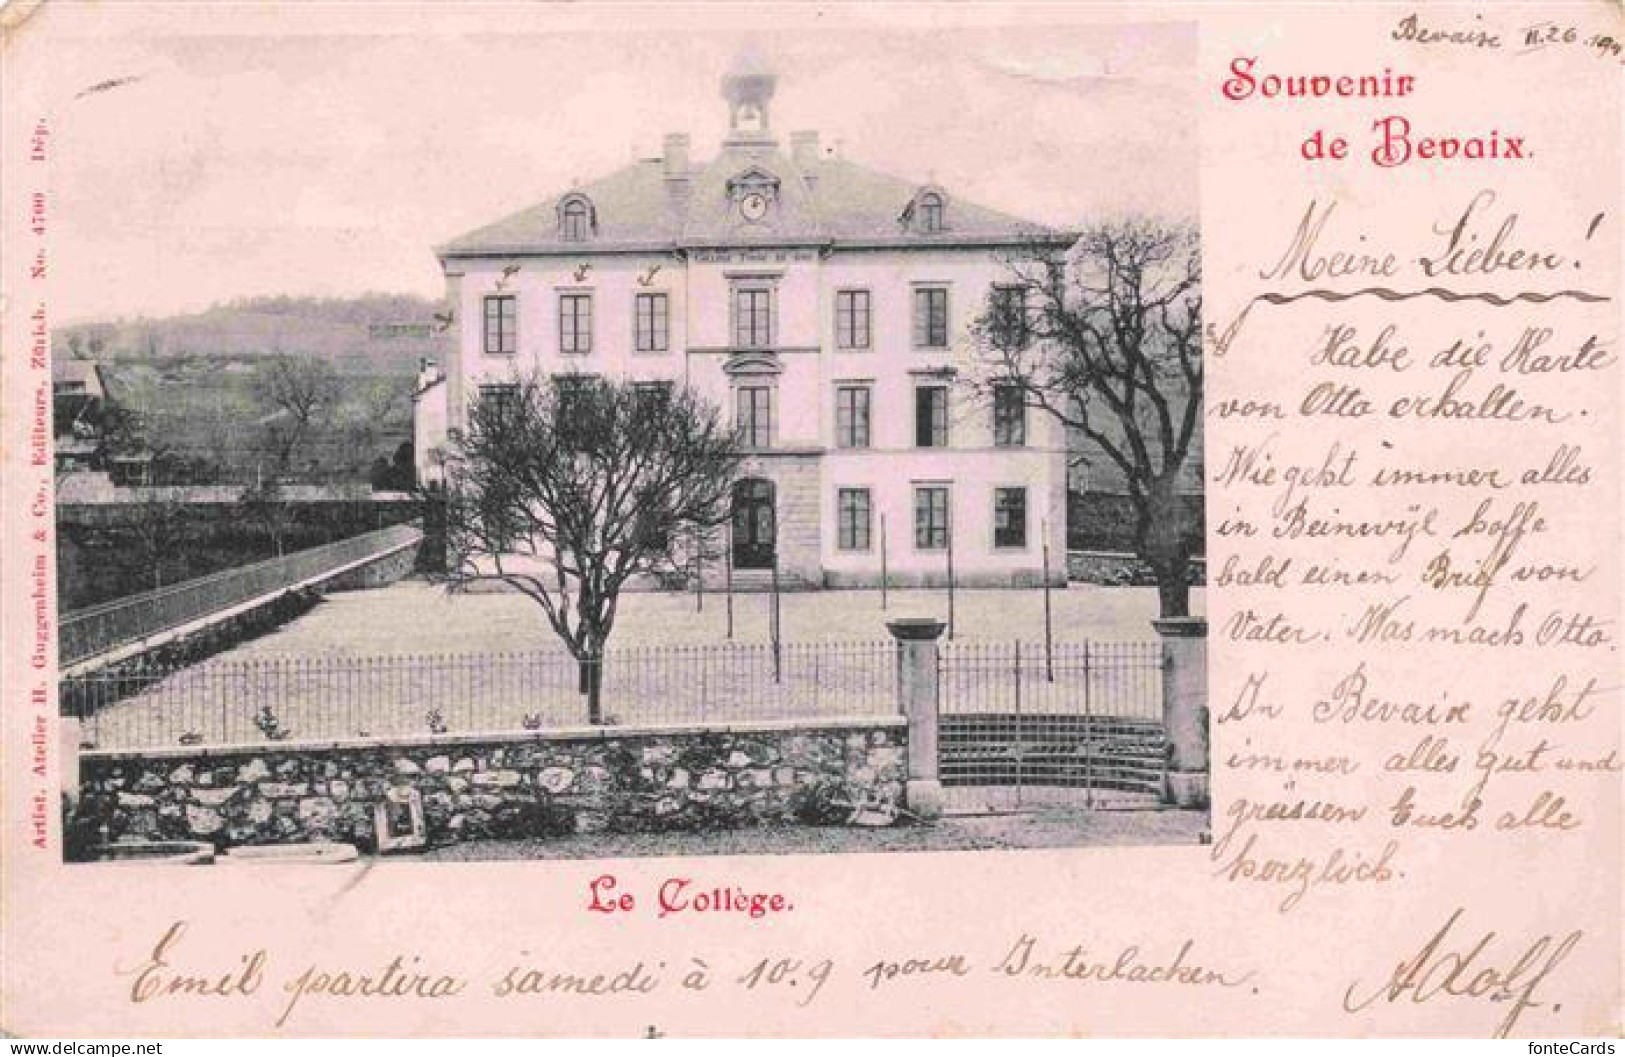 Bevaix II.26.
Souvenir
de Bevaix.
Meine Lieben!
Habe die Karte
von Otto erhalten.
Wie geht immer alles
in Beinwÿl hoffe
bald einen Brief von
Vater. Was mach Otto.
In Bevaix geht
immer alles gut und
grüssen Euch alle
herzlich.
Adolf.
Artist. Atelier H. Guggenheim & Co., Editeurs, Zürich. No. 4700 Dép.
Le Collège.
Emil partira samedi à 10.9 pour Interlacken.
delcampe.net
fonteCards